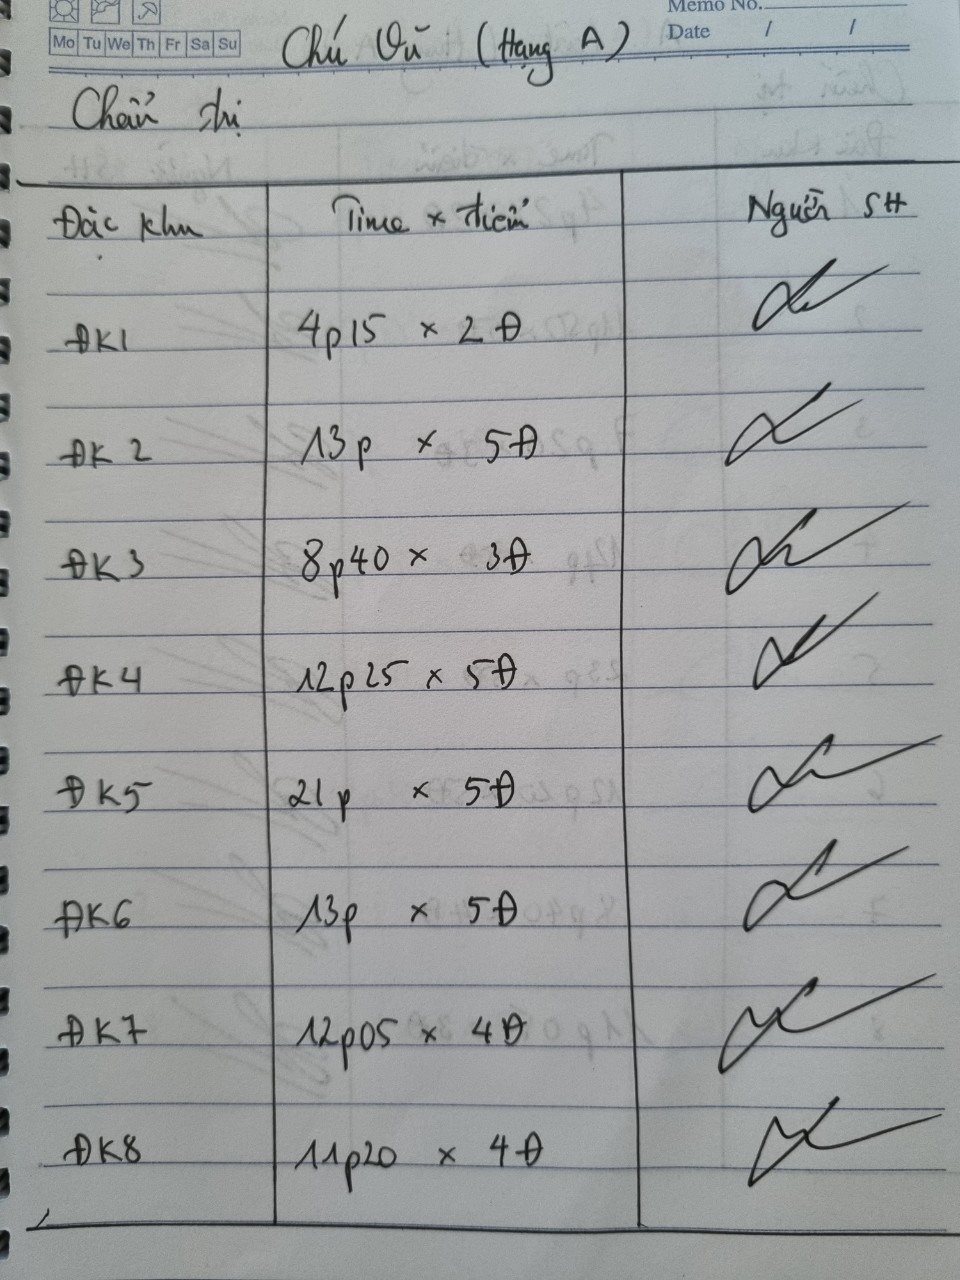 Memo No.
Mo Tu We Th Fr Sa Su
Date / /
Chú Vũ (Hạng A)
Chẩn trị
Đặc khu Time × điểm Người SH
ĐK1 4p15 × 2Đ
ĐK2 13p × 5Đ
ĐK3 8p40 × 3Đ
ĐK4 12p25 × 5Đ
ĐK5 21p × 5Đ
ĐK6 13p × 5Đ
ĐK7 12p05 × 4Đ
ĐK8 11p20 × 4Đ